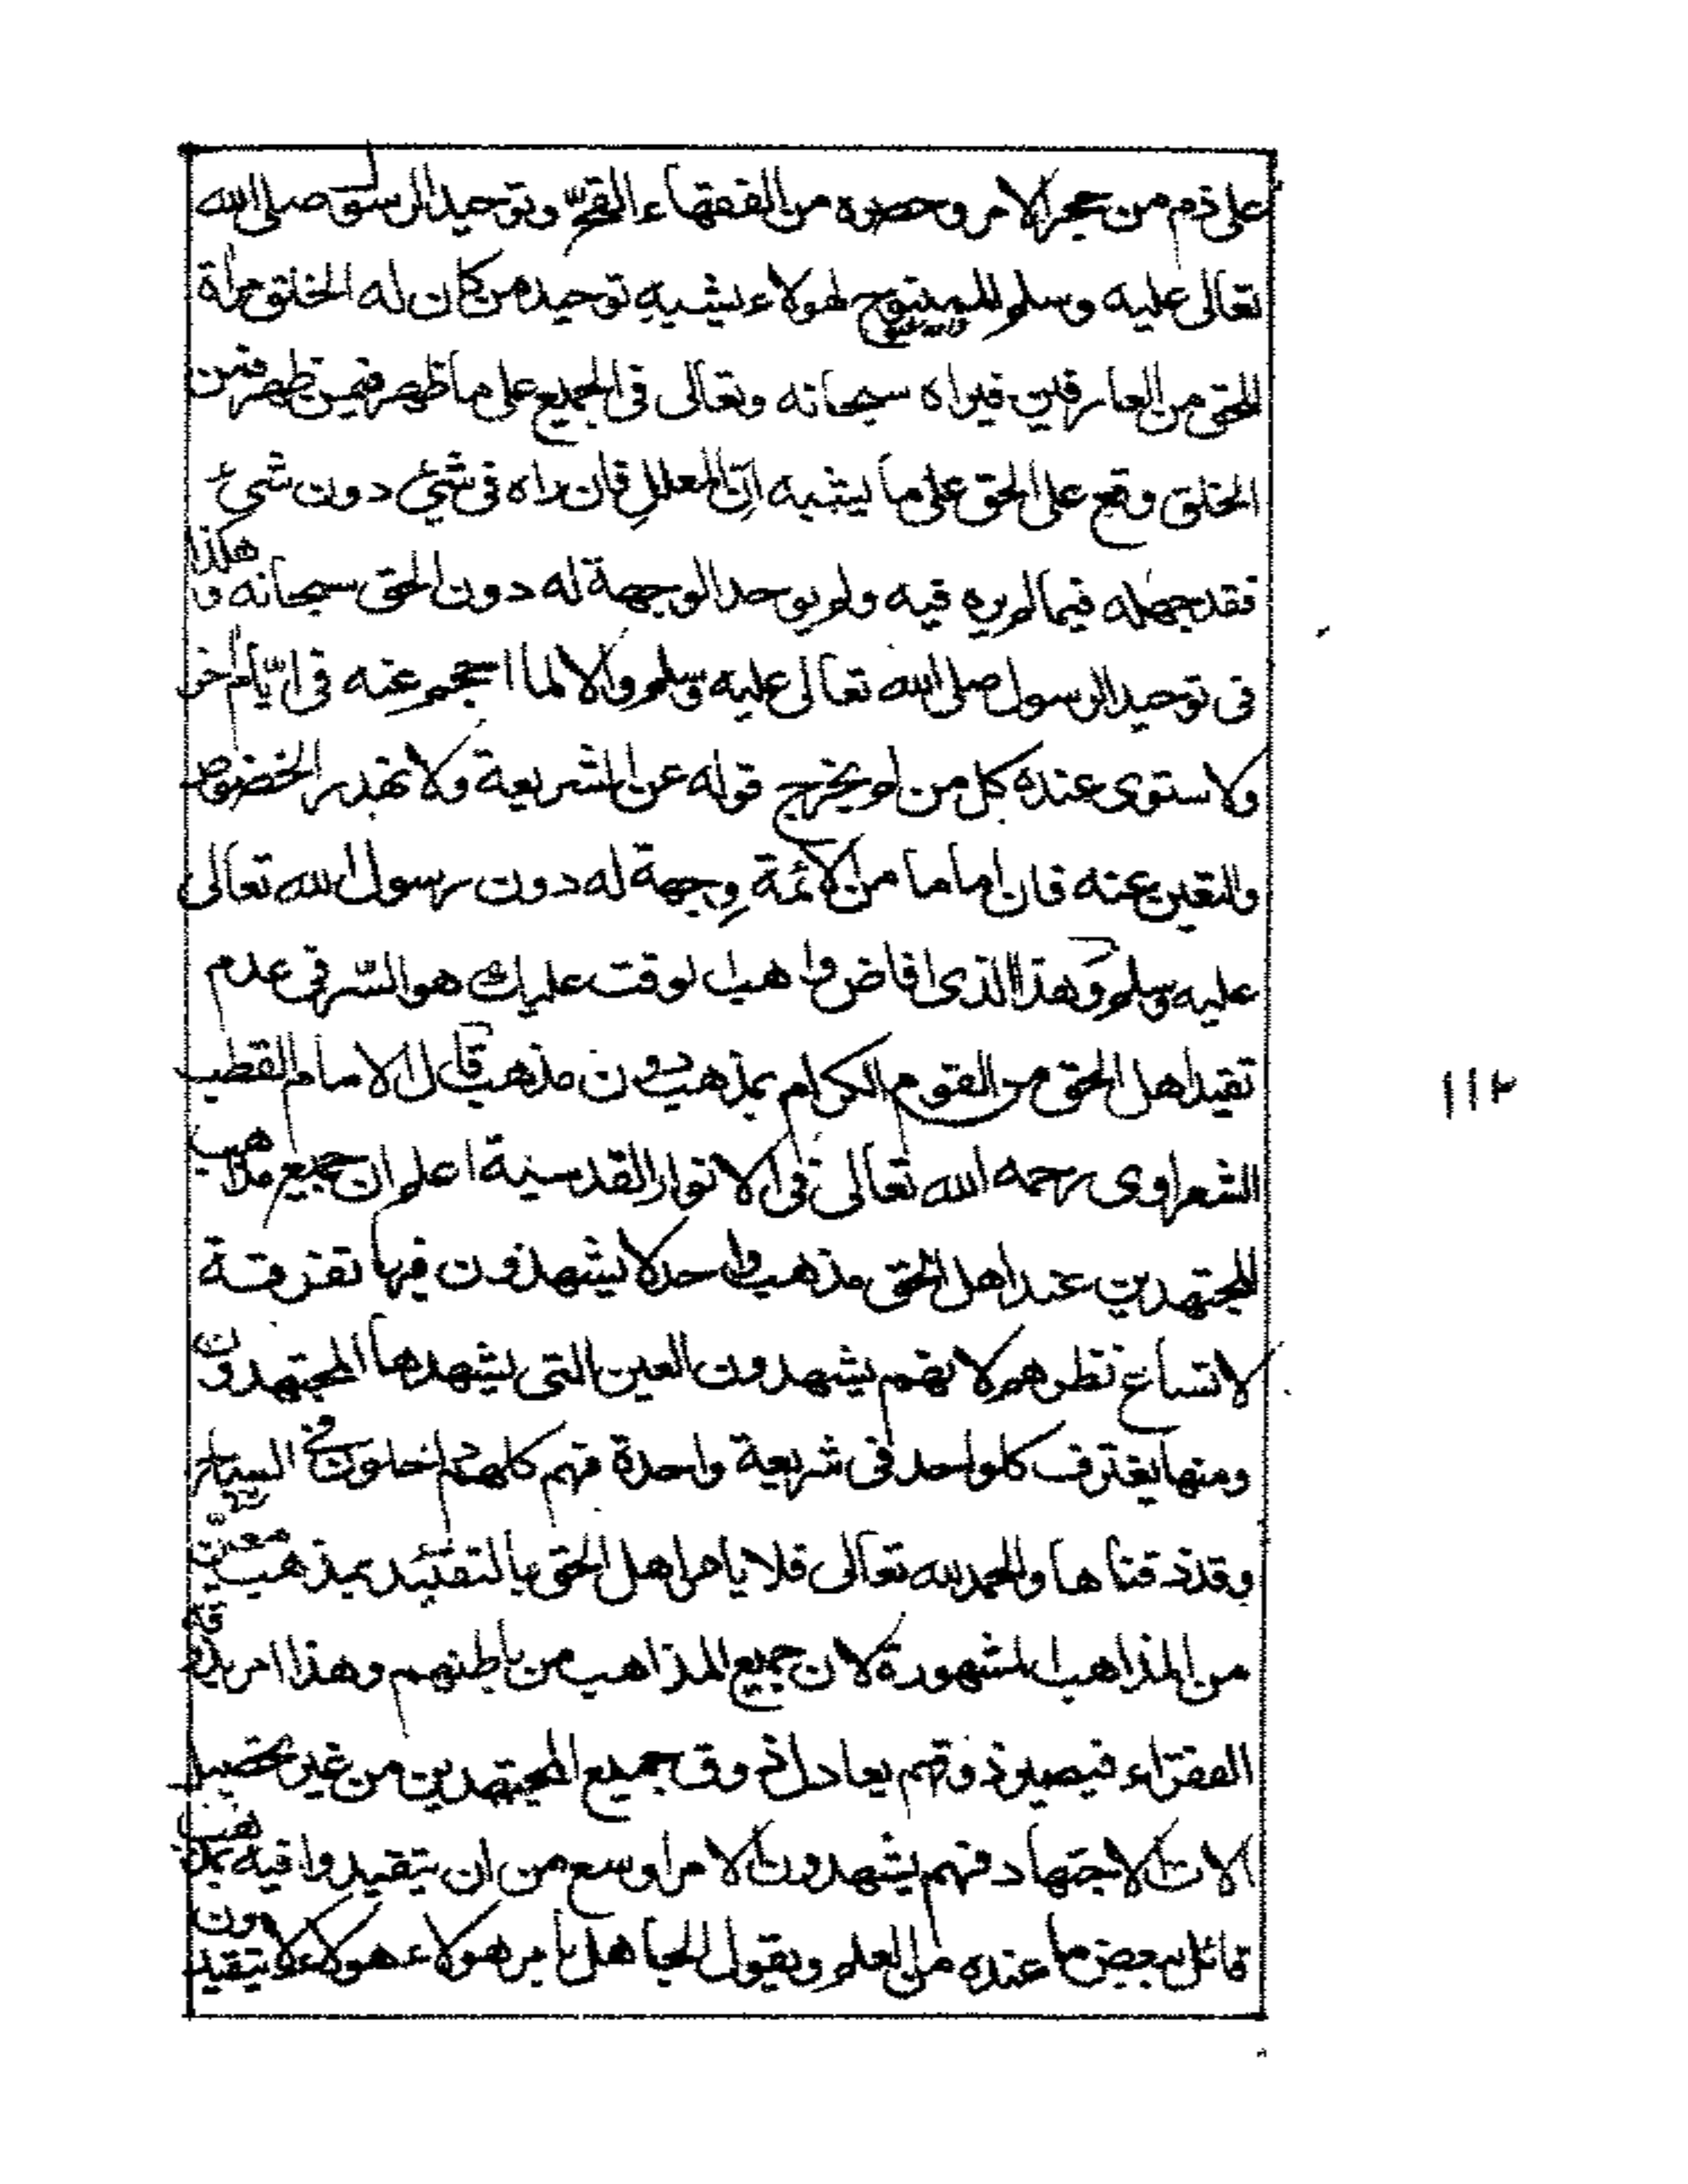 على ذم من حجر الامر وحصره من الفقهاء القح وتوحيد الرسول صلى الله
تعالى عليه وسلم لهولاء يشبه توحيد من كان له الخلق مراة
للحق من العارفين فيراه سبحانه وتعالى فى الجميع على ما ظهر فيمن ظهر فمن
الخلق وقع على الحق على ما يشبه ان المعلل فان راه فى شئ دون شئ
فقد جهله فيما لم يره فيه ولم يوحد الوجهة له دون الحق سبحانه وهكذا
فى توحيد الرسول صلى الله تعالى عليه وسلم والا لما احجم عنه فى اخر
ولاستوى عنده كل من لم يخرج قوله عن الشريعة ولانهدر الخصوص
والتعين عنه فان اماما من الائمة وجهة له دون رسول الله تعالى
عليه وسلم وهذا الذى افاض واهب الوقت عليك هو السر فى عدم
تقيد اهل الحق من القوم الكرام بمذهب دون مذهب قال الامام القطب
الشعراوى رحمه الله تعالى فى الانوار القدسية اعلم ان جميع مذاهب
المجتهدين عند اهل الحق مذهب واحد لا يشهدون فيها تفرقة
لاتساع نظرهم لانهم يشهدون العين التى يشهدها المجتهدون
ومنها يغترف كل واحد فى شريعة واحدة فهم كلهم داخلون فى السياج
وقد ذقناها والحمد لله تعالى فلا يامر اهل الحق بالتقئيد بمذهب معين
من المذاهب المشهورة لان جميع المذاهب من باطنهم وهذا امر يذوقه
الفقراء فيصير ذوقهم يعادل ذوق جميع المجتهدين من غير تحصيل
الات الاجتهاد فهم يشهدون الامر اوسع من ان يتقيدوا فيه بمذهب
قائل ببعض ما عنده من العلم ويقول الجاهل بامر هولاء هولاء لا يتقيدون
١١٢